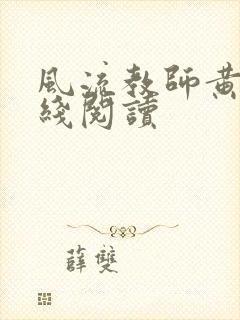 風流教師黄
綫閱讀
薛雙